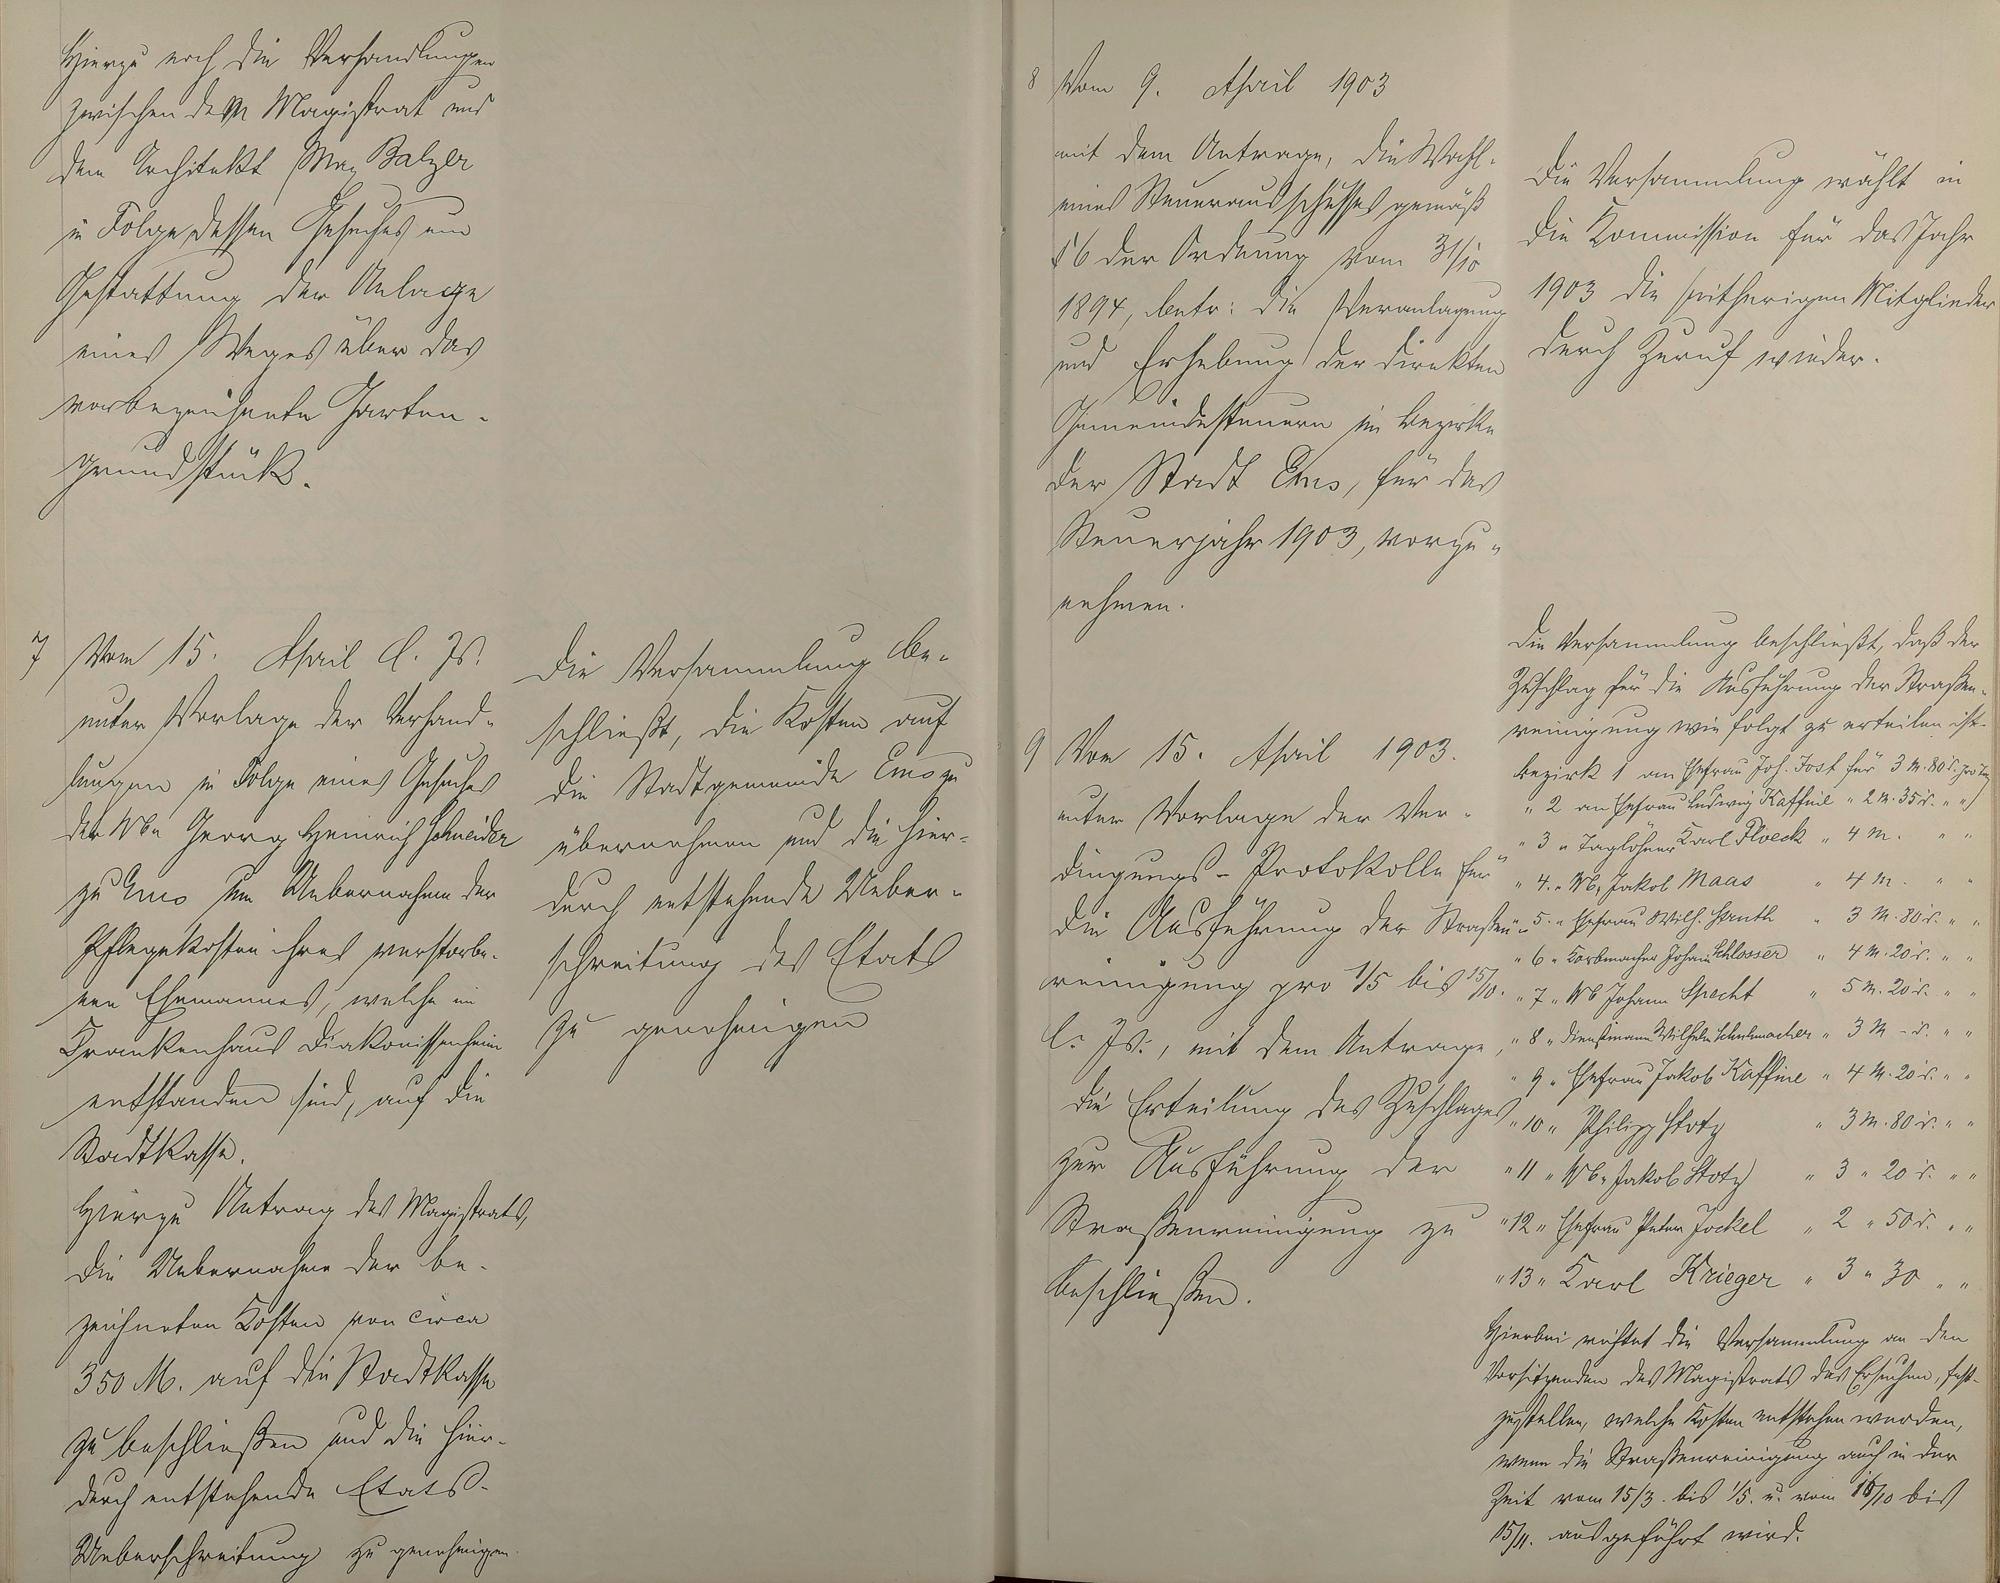 Hierzu noch die Verhandlungen
zwischen dem Magistrat und
dem Architekt Max Balzer
in Folge dessen Gesuches um
Gestattung der Anlage
eines Weges über das
vorbezeichnete Garten-
grundstück.
7 Vom 15. April l. Js.
unter Vorlage der Verhand-
lungen in Folge eines Gesuches
der Wwe Georg Heinrich Schneider
zu Ems um Uebernahme der
Pflegekosten ihres verstorbe-
nen Ehemannes, welche im
Krankenhaus Diakonissenheim
entstanden sind, auf die
Stadtkasse.
Hierzu Antrag des Magistrats,
die Uebernahme der be-
zeichneten Kosten von circa
350 M. auf die Stadtkasse
zu beschließen und die hier-
durch entstehende Etats-
Ueberschreitung zu genehmigen.
Die Versammlung be-
schließt, die Kosten auf
die Stadtgemeinde Ems zu
übernehmen und die hier-
durch entstehende Ueber-
schreitung des Etats
zu genehmigen
8 Vom 9. April 1903
mit dem Antrage, die Wahl
eines Steuerausschusses gemäß
§ 6 der Ordnung vom 31/10
1894, betr: die Veranlagung
und Erhebung der direkten
Gemeindesteuern im Bezirke
der Stadt Ems, für das
Steuerjahr 1903, vorzu-
nehmen.
Die Versammlung wählt in
die Kommission für das Jahr
1903 die seitherigen Mitglieder
durch Zuruf wieder.
9 Vom 15. April 1903.
unter Vorlage der Ver-
dingungs-Protokolle für
die Ausführung der Straßen-
reinigung pro 1/5 bis 15/10.
l. Js., mit dem Antrage,
die Erteilung des Zuschlages
zur Ausführung der
Straßenreinigung zu
beschließen.
Die Versammlung beschließt, daß der
Zuschlag für die Ausführung der Straßen-
reinigung wie folgt zu erteilen ist.
Bezirk 1 an Ehefrau Joh. Jost für 3 M. 80 d. pro Tag
" 2 an Ehefrau Ludwig Kaffine " 2 M. 35 d. " "
" 3 " Taglöhner Karl Floeck " 4 M. " "
" 4. " Ww. Jakob Maas " 4 M. " "
" 5. " Ehefrau Wilh. " 3 M. 80 d. " "
" 6 " Korbmacher Johann Schlosser " 4 M. 20 d. " "
" 7 " Ww Johann Specht " 5 M. 20 d. " "
" 8 " Dienstmann Wilhelm Schuhmacher " 3 M - d. " "
" 9 " Ehefrau Jakob Kaffine " 4 M. 20 d. " "
" 10 " Philipp Stotz " 3 M. 80 d. " "
" 11 " Ww. Jakob Stotz " 3 " 20 d. " "
" 12 " Ehefrau Peter Jockel " 2 " 50 d. " "
" 13 " Karl Krieger " 3 " 30 " "
Hierbei richtet die Versammlung an den
Vorsitzenden des Magistrats das Ersuchen, fest-
zustellen, welche Kosten entstehen werden,
wenn die Straßenreinigung auch in der
Zeit vom 15/3. bis 1/5. u. vom 16/10 bis
15/11. ausgeführt wird.